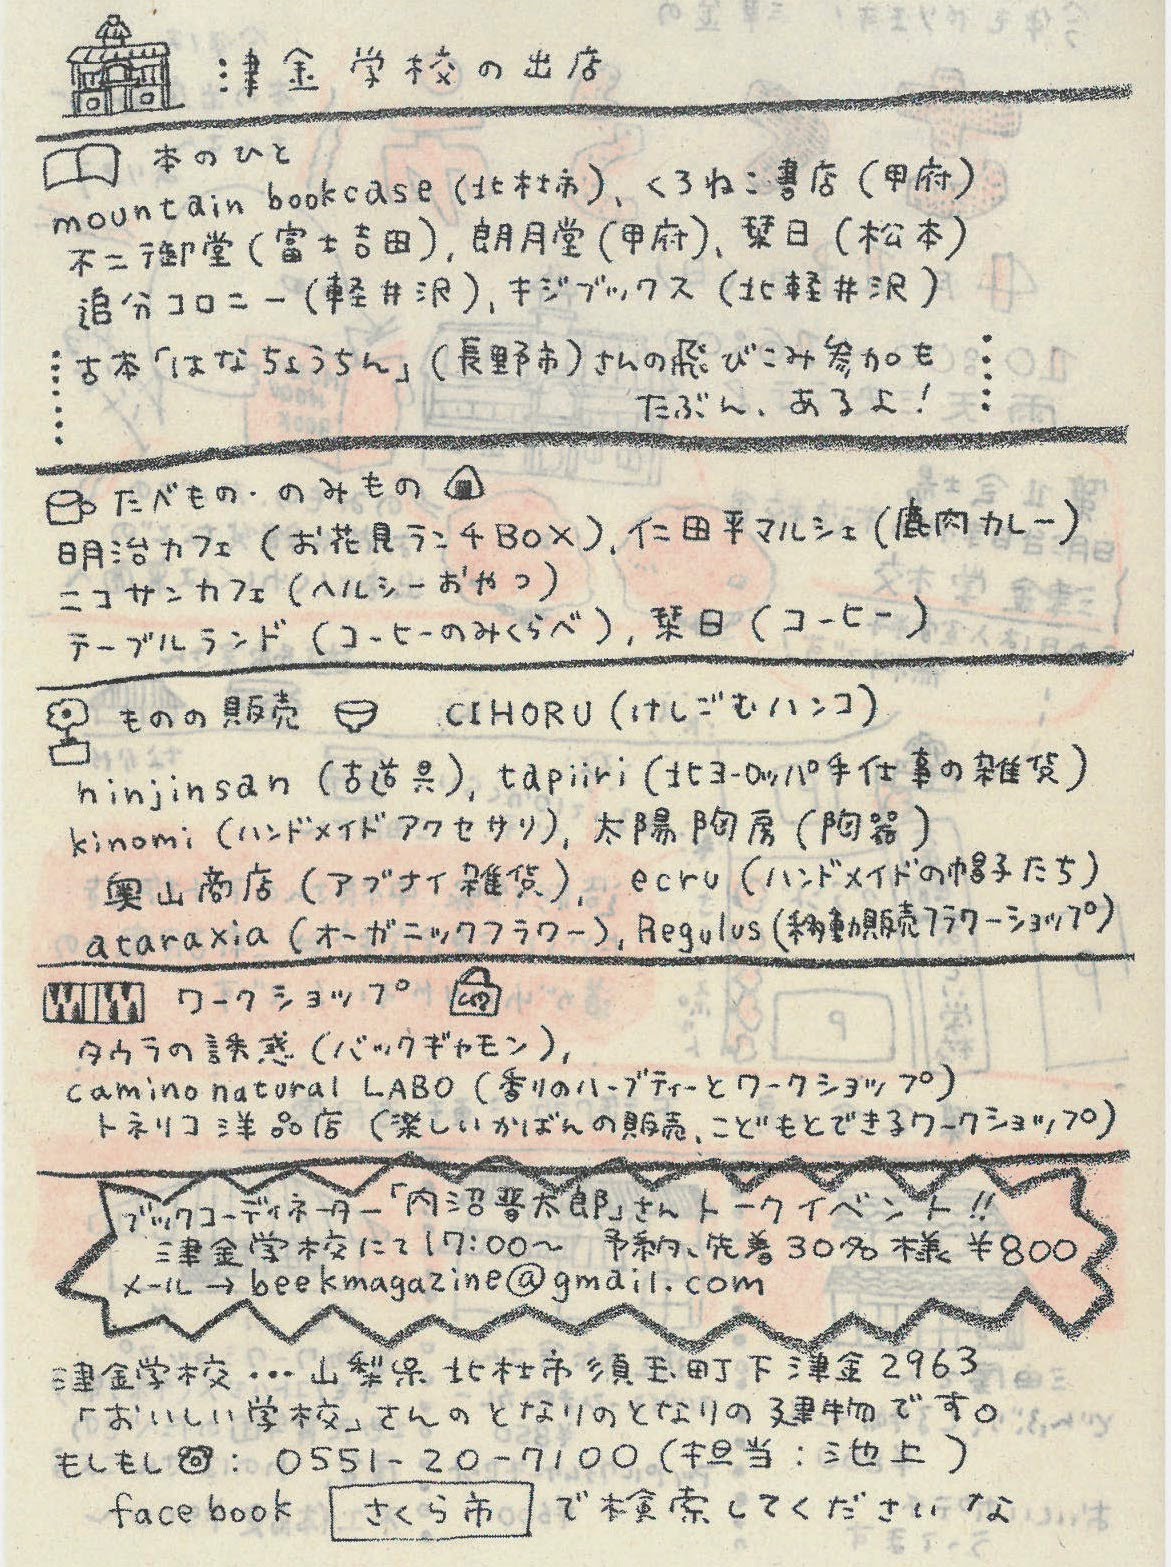 津金学校の出店
本のひと
mountain bookcase (北杜市)、くろねこ書店 (甲府)
不二御堂 (富士吉田)、朗月堂 (甲府)、栞日 (松本)
追分コロニー (軽井沢)、キジブックス (北軽井沢)
古本「はなちょうちん」(長野市) さんの飛びこみ参加も
たぶん、あるよ!
たべもの・のみもの
明治カフェ (お花見ランチBOX)、仁田平マルシェ (鹿肉カレー)
ニコサンカフェ (ヘルシーおやつ)
テーブルランド (コーヒーのみくらべ)、栞日 (コーヒー)
ものの販売 CIHORU (けしごむハンコ)
ninjinsan (古道具)、tapiiri (北ヨーロッパ手仕事の雑貨)
kinomi (ハンドメイドアクセサリ)、太陽陶房 (陶器)
奥山商店 (アブナイ雑貨)、 ecru (ハンドメイドの帽子たち)
ataraxia (オーガニックフラワー)、Regulus (移動販売フラワーショップ)
ワークショップ
タウラの誘惑 (バックギャモン)、
camino natural LABO (香りのハーブティーとワークショップ)
トネリコ洋品店 (楽しいかばんの販売、こどもとできるワークショップ)
ブックコーディネーター「内沼晋太郎」さんトークイベント!!
津金学校にて17:00〜 予約、先着30名様 ¥800
メール→ beekmagazine@gmail.com
津金学校…山梨県北杜市須玉町下津金2963
「おいしい学校」さんのとなりのとなりの建物です。
もしもし: 0551-20-7100 (担当:池上)
facebook さくら市 で検索してくださいな